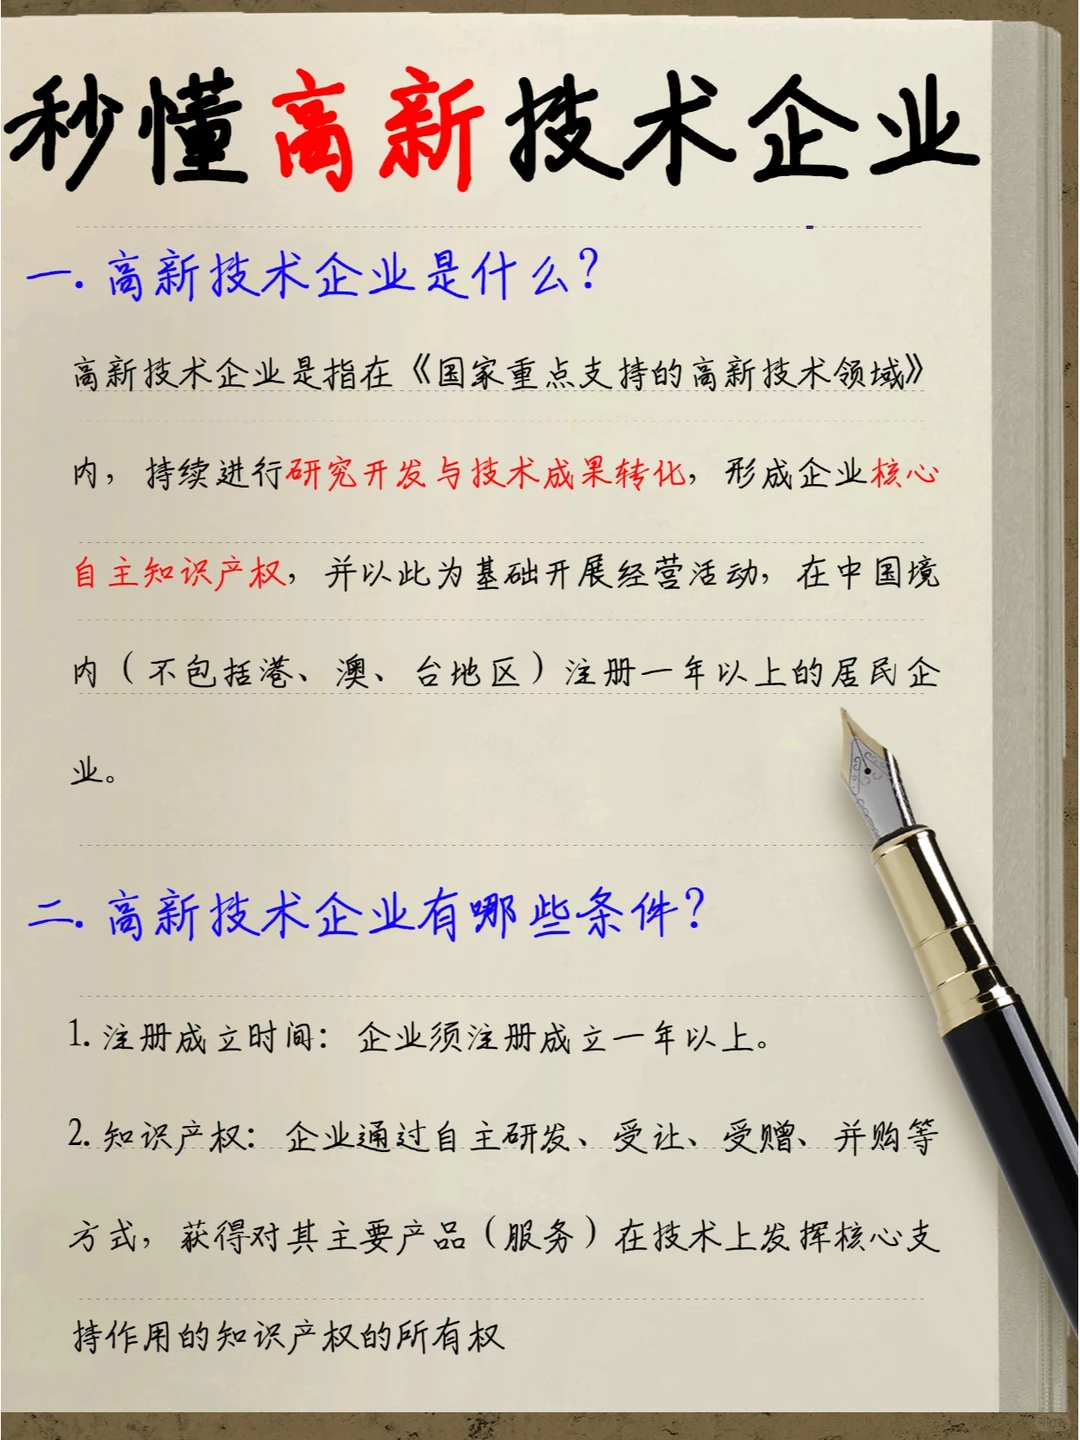 秒懂高新技术企业
一. 高新技术企业是什么?
高新技术企业是指在《国家重点支持的高新技术领域》
内，持续进行研究开发与技术成果转化，形成企业核心
自主知识产权，并以此为基础开展经营活动，在中国境
内（不包括港、澳、台地区）注册一年以上的居民企
业。
二. 高新技术企业有哪些条件?
1. 注册成立时间：企业须注册成立一年以上。
2. 知识产权：企业通过自主研发、受让、受赠、并购等
方式，获得对其主要产品（服务）在技术上发挥核心支
持作用的知识产权的所有权